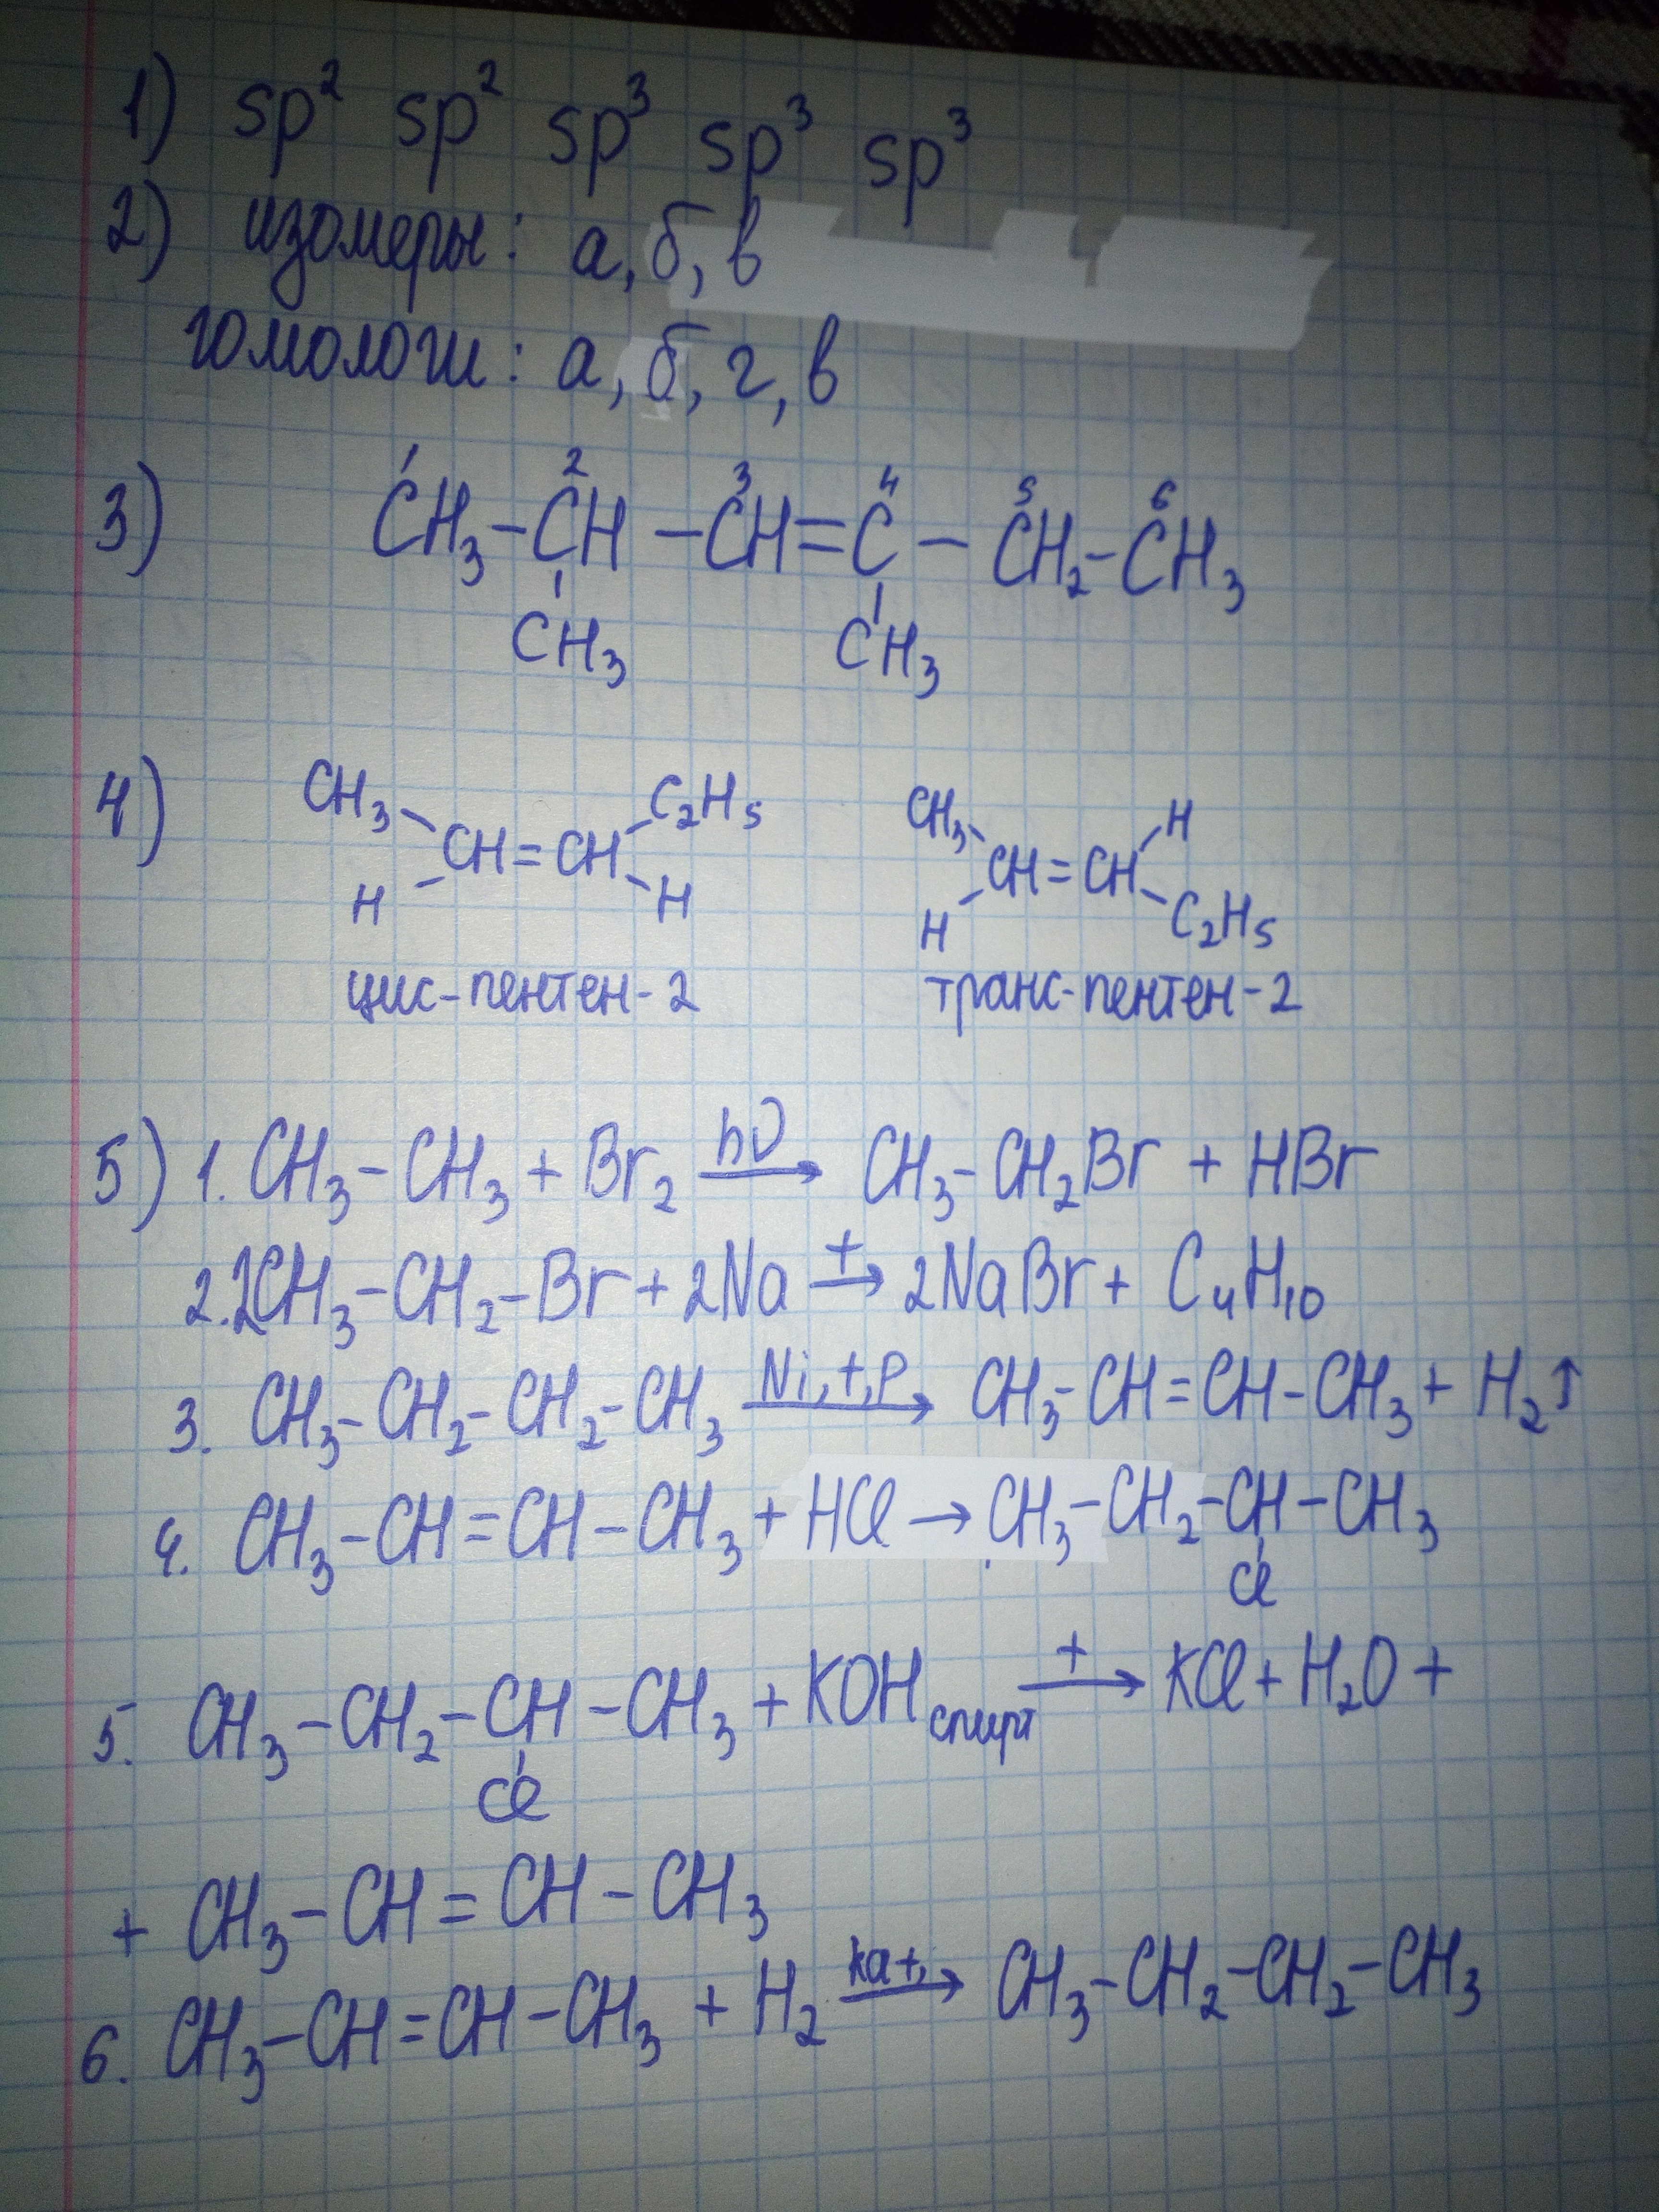 1) sp² sp² sp³ sp³ sp³
2) изомеры: а, б, в
гомологи: а, б, г, в
3) CH₃ – CH – CH = C – CH₂ – CH₃
1 2 3 4 5 6
CH₃ CH₃
4) CH₃ C₂H₅ CH₃ H
CH = CH CH = CH
H H H C₂H₅
цис-пентен-2 транс-пентен-2
5) 1. CH₃ – CH₃ + Br₂ hν → CH₃ – CH₂Br + HBr
2. 2CH₃ – CH₂ – Br + 2Na t → 2NaBr + C₄H₁₀
3. CH₃ – CH₂ – CH₂ – CH₃ Ni, t, p → CH₃ – CH = CH – CH₃ + H₂↑
4. CH₃ – CH = CH – CH₃ + HCl → CH₃ – CH₂ – CH – CH₃
Cl
5. CH₃ – CH₂ – CH – CH₃ + KOH спирт t → KCl + H₂O +
Cl
+ CH₃ – CH = CH – CH₃
6. CH₃ – CH = CH – CH₃ + H₂ kat, → CH₃ – CH₂ – CH₂ – CH₃